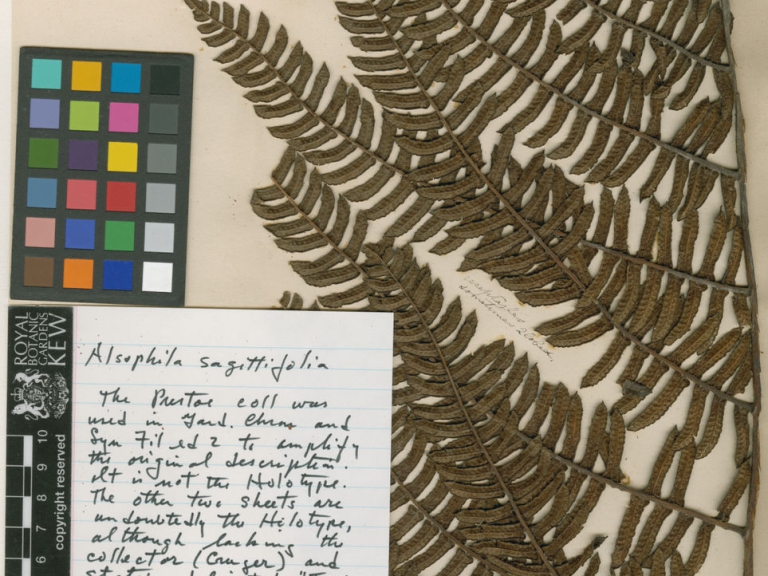 Alsophila sagittifolia
The Purtoe coll was
used in Gard. Chron and
Syn Fil ed 2 to amplify
the original description.
It is not the Holotype.
The other two sheets are
undoubtedly the Holotype,
although lacking the
collector (Cruger) and
ROYAL
BOTANIC
GARDENS
KEW
copyright reserved
10
9
8
7
6
sometimes